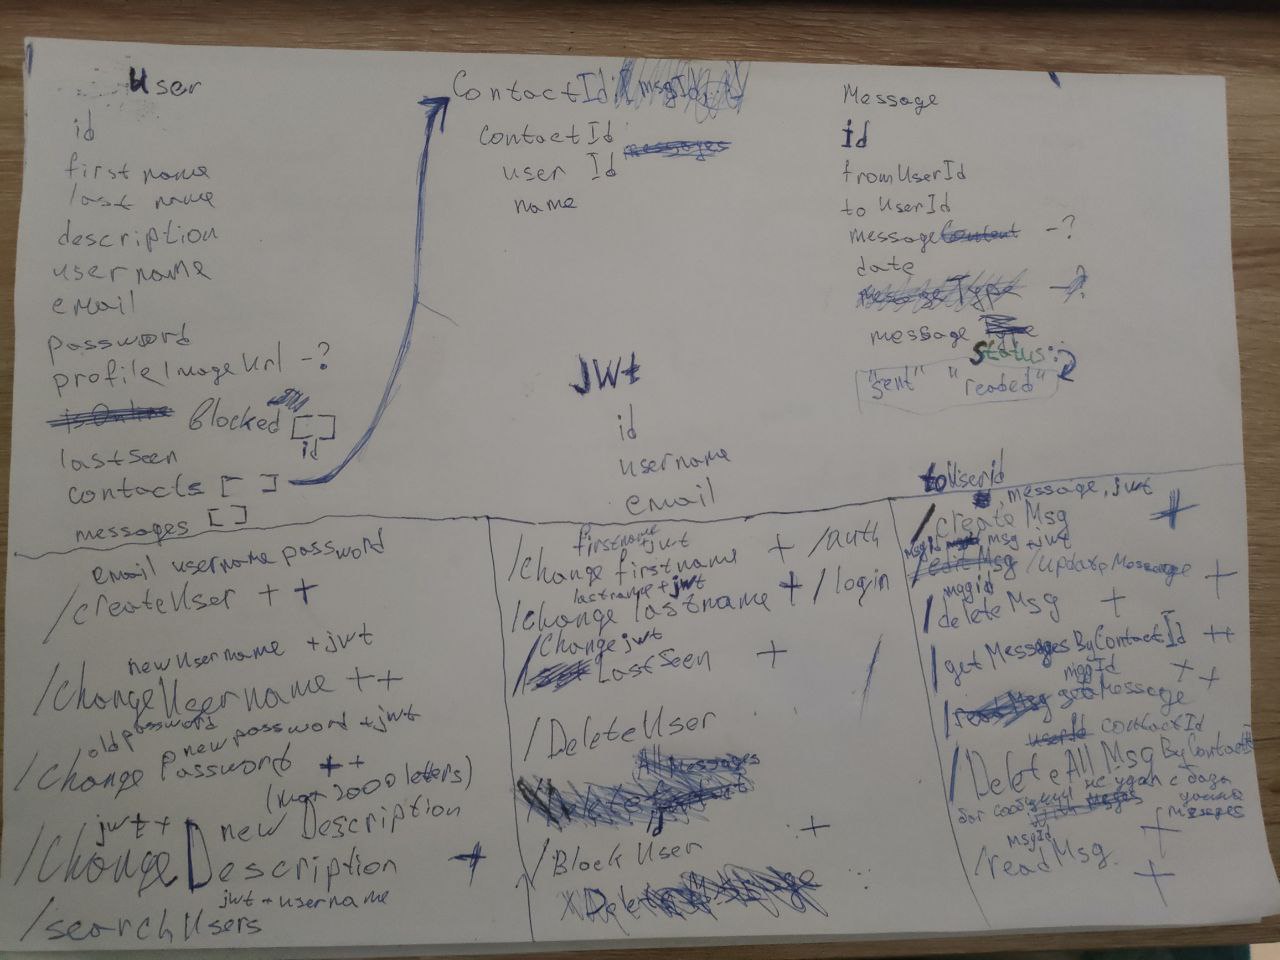 User
id
first name
last name
description
username
email
password
profileImageUrl -?
isOnline Blocked [ ]
id
lastSeen
contacts [ ]
messages [ ]
ContactId: [msgId, ..]
contactId messages
user Id
name
Message
id
fromUserId
to UserId
messageContent -?
date
messageType -?
message Type
Status:
"sent" "readed"
JWt
id
username
email
email username password
/createUser + +
newUsername + jwt
/changeUsername ++
old password new password + jwt
/change Password ++
(max 2000 letters)
jwt + new Description
/change Description +
jwt + username
/searchUsers
firstname + jwt
/change firstname + /auth
lastname + jwt
/change lastname + /login
/Change jwt
LastSeen +
/DeleteUser
All Messages
id
/BlockUser +
X Delete Message
toUserId
, message, jwt
/create Msg +
msgId msg + jwt
/edit Msg /updateMessage +
msgid
/delete Msg +
/getMessagesByContactId ++
msgId ++
/read Msg getMessage
userId contactId
/DeleteAllMsgByContactId
не удал с база
messages
msgId +
/read Msg +